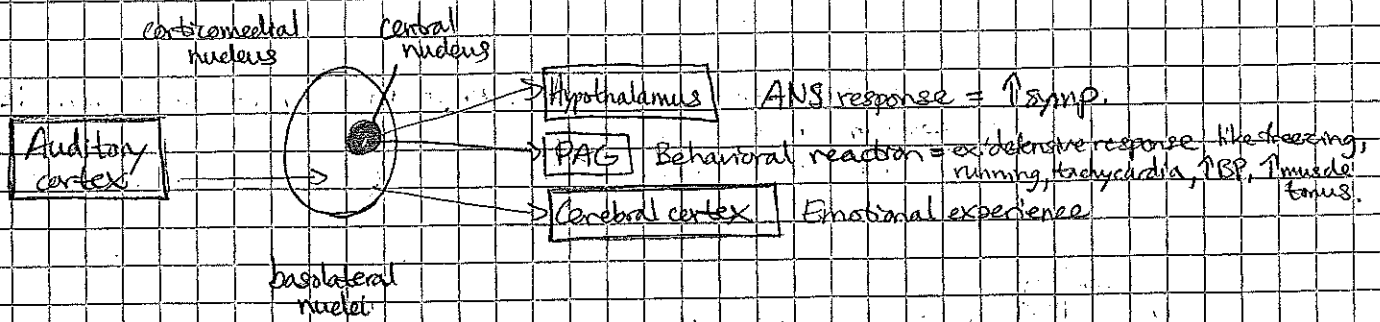 corticomedial
nucleus
central
nucleus
Hypothalamus
ANS response = ↑symp.
Auditory
cortex
PAG
Behavioral reaction = ex: defensive response like freezing,
running, tachycardia, ↑BP, ↑muscle
tonus.
Cerebral cortex
Emotional experience
basolateral
nuclei